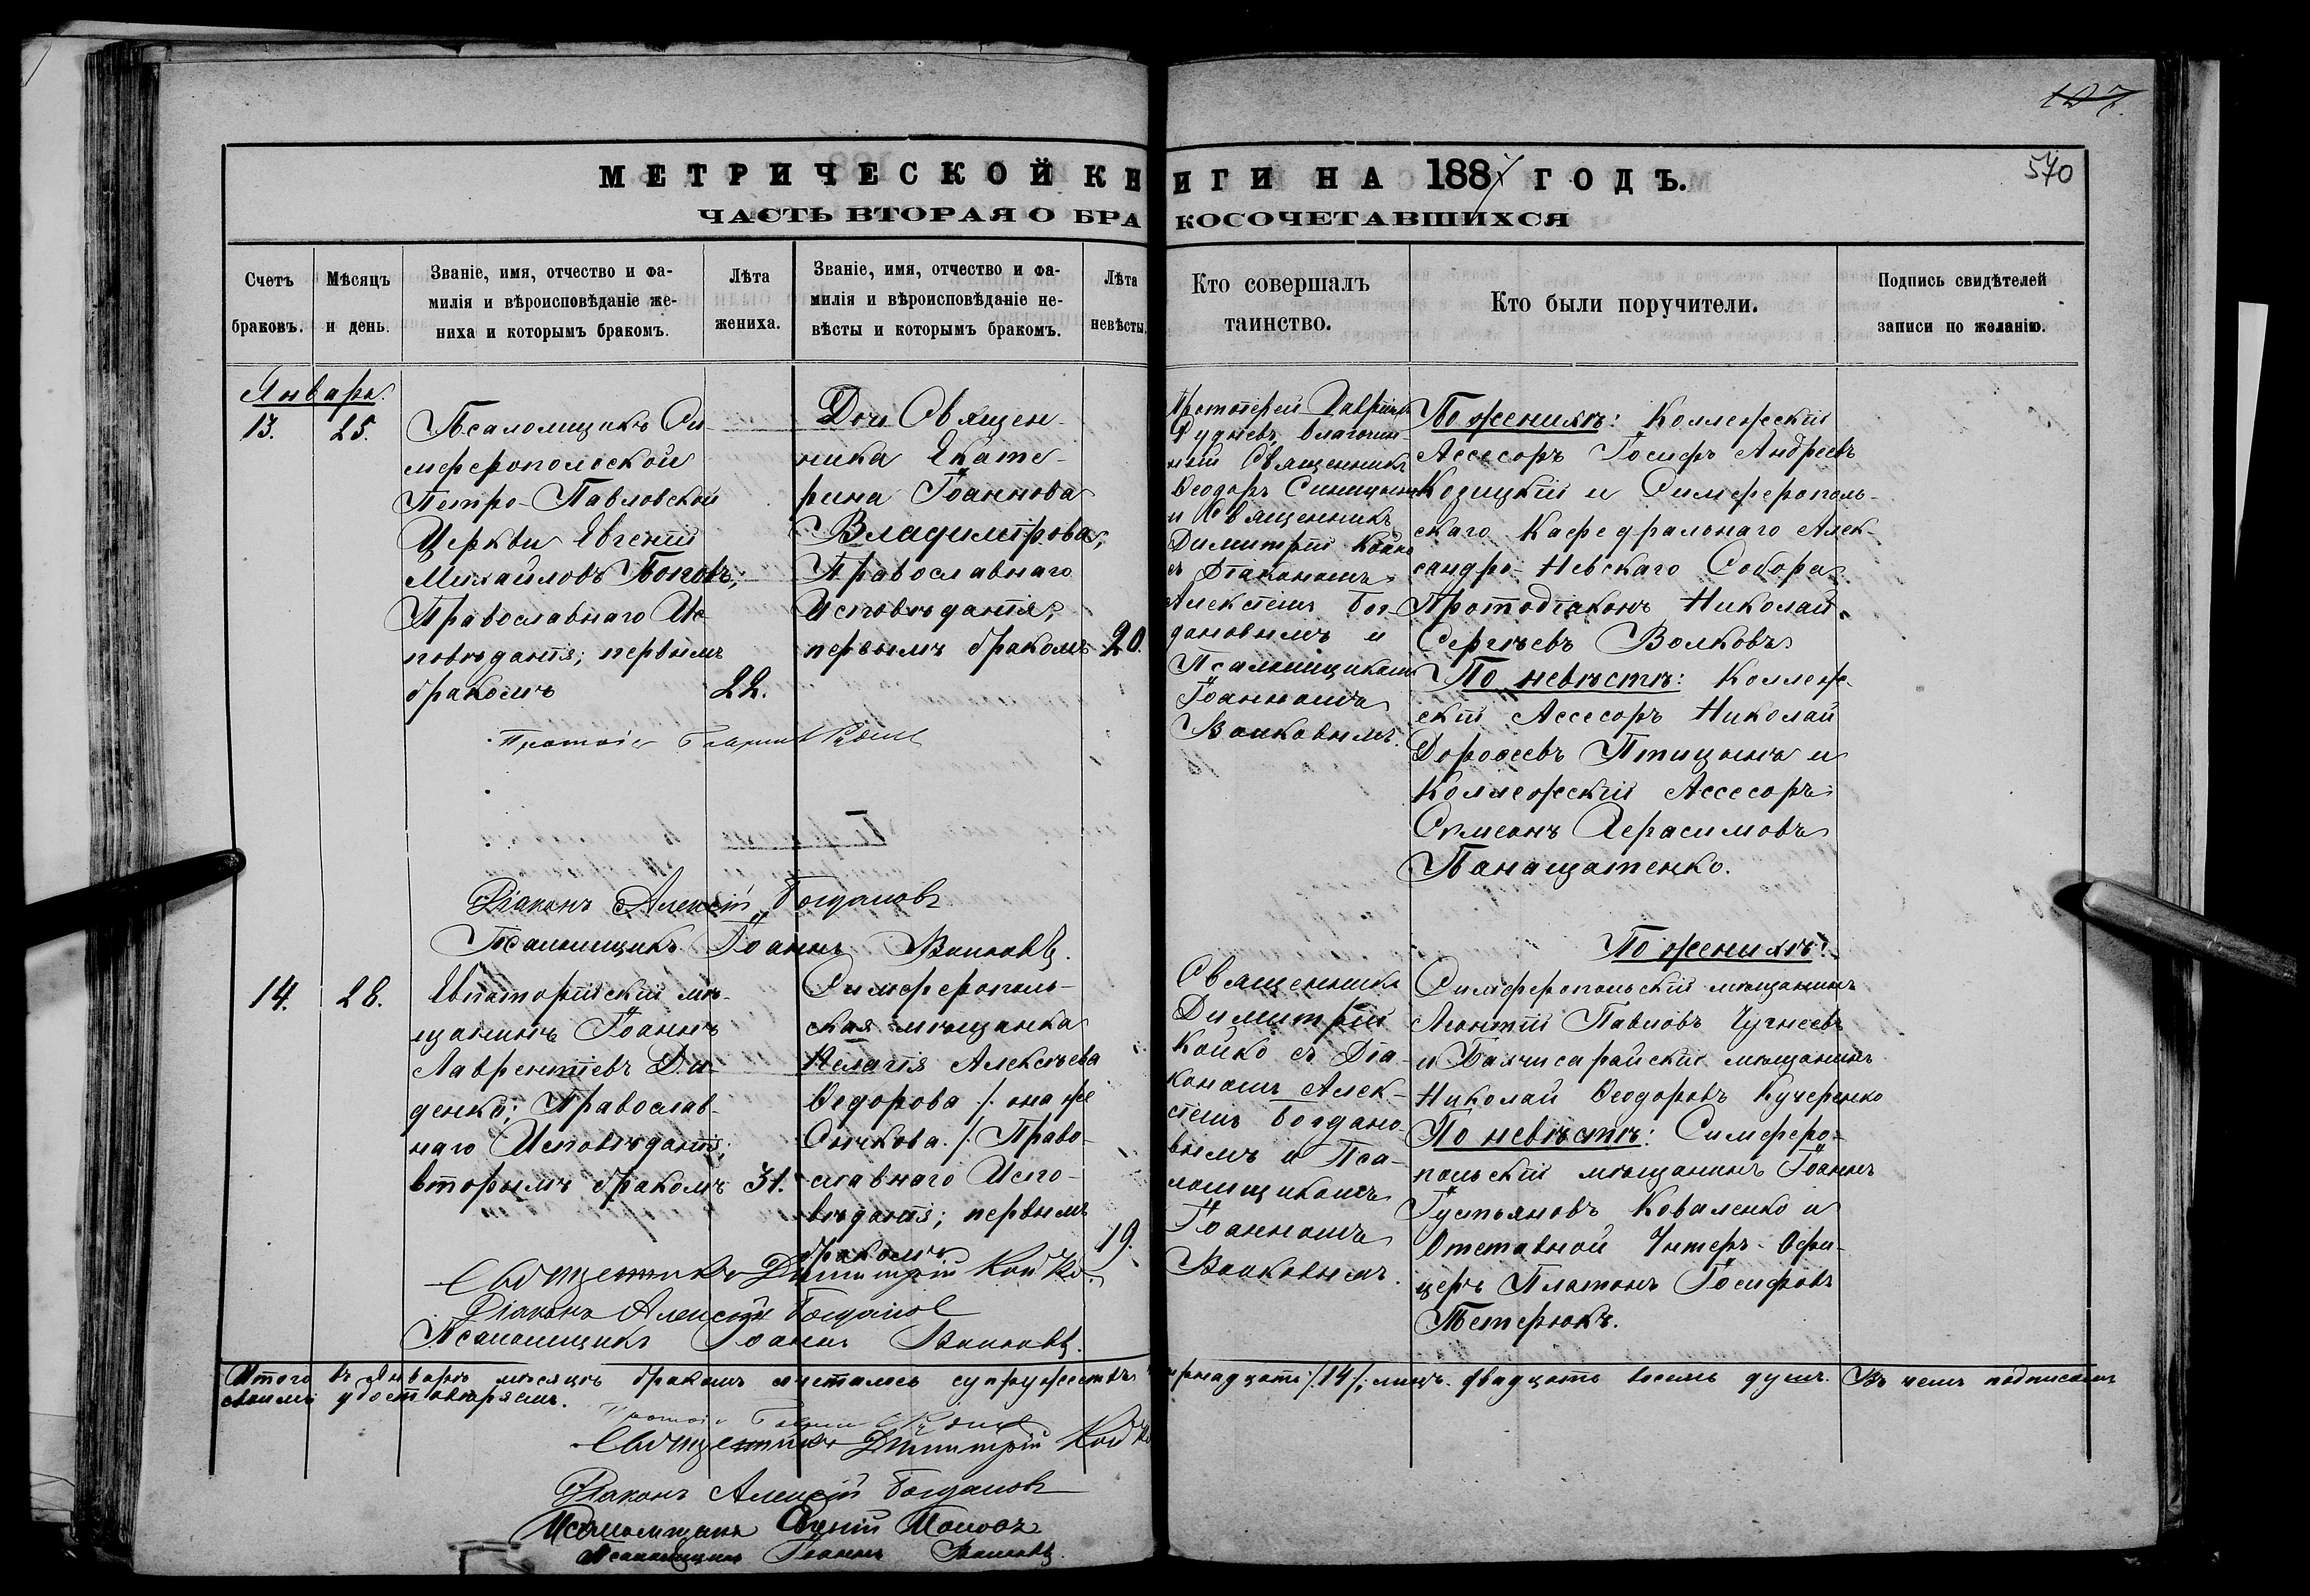 127.
570
МЕТРИЧЕСКОЙ КНИГИ НА 1887 ГОДЪ.
ЧАСТЬ ВТОРАЯ О БРАКОСОЧЕТАВШИХСЯ
Счетъ
браковъ.
Мѣсяцъ
и день.
Званіе, имя, отчество и фа-
милія и вѣроисповѣданіе же-
ниха и которымъ бракомъ.
Лѣта
жениха.
Званіе, имя, отчество и фа-
милія и вѣроисповѣданіе не-
вѣсты и которымъ бракомъ.
Лѣта
невѣсты.
Кто совершалъ
таинство.
Кто были поручители.
Подпись свидѣтелей
записи по желанію.
Январь.
13.
25.
Псаломщикъ Си-
мферопольской
Петро-Павловской
Церкви Евгеній
Михайловъ Поповъ;
Православнаго Ис-
повѣданія; первымъ
бракомъ
22.
Дочь Священ-
ника Екате-
рина Іоаннова
Владимірова;
Православнаго
Исповѣданія;
первымъ бракомъ
20.
Протоіерей Гавріилъ
Рудневъ, благочин-
ный Священникъ
Ѳеодоръ Синицынъ
и Священникъ
Димитрій Койко
съ Діакономъ
Алексіемъ Бог-
дановымъ и
Псаломщикомъ
Іоанномъ
Волковымъ.
По женихѣ: Коллежскій
Ассесоръ Іосифъ Андреевъ
Козицкій и Симферополь-
скаго Кафедральнаго Алек-
сандро-Невскаго Собора
Протодіаконъ Николай
Сергѣевъ Волковъ
По невѣстѣ: Коллеж-
скій Ассесоръ Николай
Дорофеевъ Птицынъ и
Коллежскій Ассесоръ
Симеонъ Герасимовъ
Панащатенко.
Діаконъ Алексій Богдановъ
Псаломщикъ Іоаннъ Волковъ.
14.
28.
Евпаторійскій мѣ-
щанинъ Іоаннъ
Лаврентіевъ Ди-
денко; Православ-
наго Исповѣданія;
вторымъ бракомъ
31.
Симферополь-
ская мѣщанка
Пелагія Алексѣева
Ѳедорова /: она же
Сычкова :/ Право-
славнаго Испо-
вѣданія; первымъ
бракомъ
19.
Священникъ
Димитрій
Койко съ Діа-
кономъ Алек-
сіемъ Богдано-
вымъ и Пса-
ломщикомъ
Іоанномъ
Волковымъ.
По женихѣ:
Симферопольскій мѣщанинъ
Леонтій Павловъ Чугнеевъ
и Бахчисарайскій мѣщанинъ
Николай Ѳеодоровъ Кучеренко
По невѣстѣ: Симферо-
польскій мѣщанинъ Іоаннъ
Іустьяновъ Коваленко и
Отставной Унтеръ-Офи-
церъ Платонъ Іосифовъ
Тетерюкъ.
Священникъ Димитрій Койко.
Діаконъ Алексій Богдановъ
Псаломщикъ Іоаннъ Волковъ.
Итого въ Январѣ мѣсяцѣ бракомъ сочеталось супружествъ четырнадцать /:14:/; лицъ двадцать восемь душъ. Въ чемъ подписомъ
своимъ удостовѣряемъ.
Священникъ Димитрій Койко
Діаконъ Алексій Богдановъ
Псаломщикъ Евгеній Поповъ
Псаломщикъ Іоаннъ Волковъ.